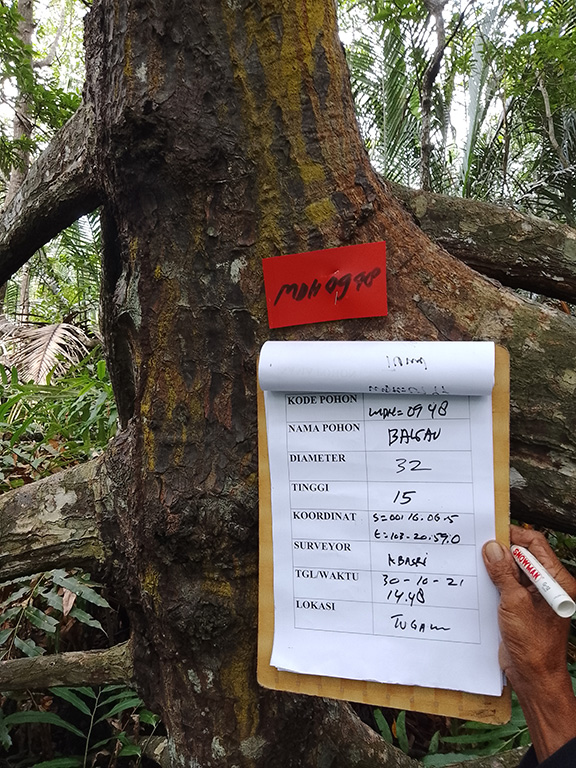 MDH 0948
KODE POHON MDH=0948
NAMA POHON BAKAU
DIAMETER 32
TINGGI 15
KOORDINAT S=00.16.06.5
E=103-20.59.0
SURVEYOR
TGL/WAKTU 30-10-21
14.48
LOKASI
SNOWMAN